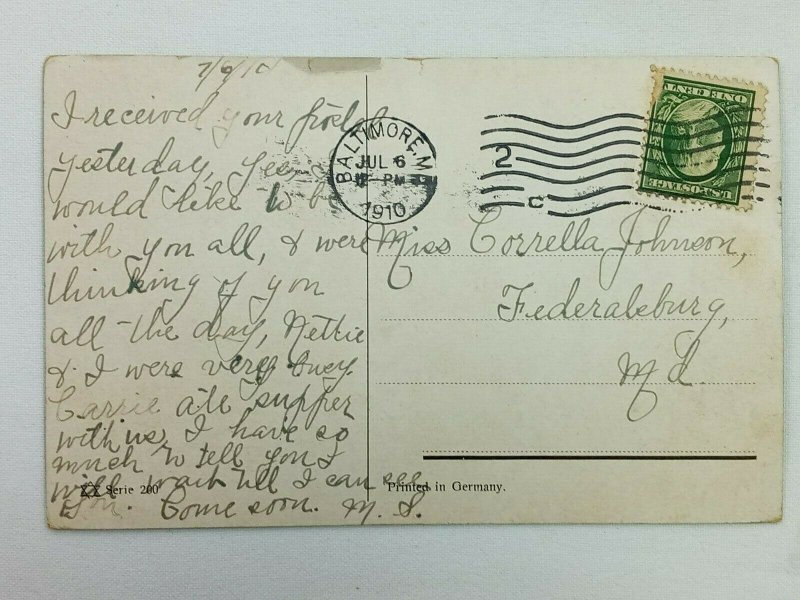 7/6/10
I received your postal
yesterday, yes I
would like to be
with you all, & were
thinking of you
all the day, Nettie
& I were very busy
Carrie ate supper
with us, I have so
much to tell you I
will wait till I can see
you. Come soon. M. S.
Serie 200
BALTIMORE, M
JUL 6
PM
1910
2
C
U.S. POSTAGE
ONE CENT
Miss Correlia Johnson,
Federalsburg,
Md.
Printed in Germany.